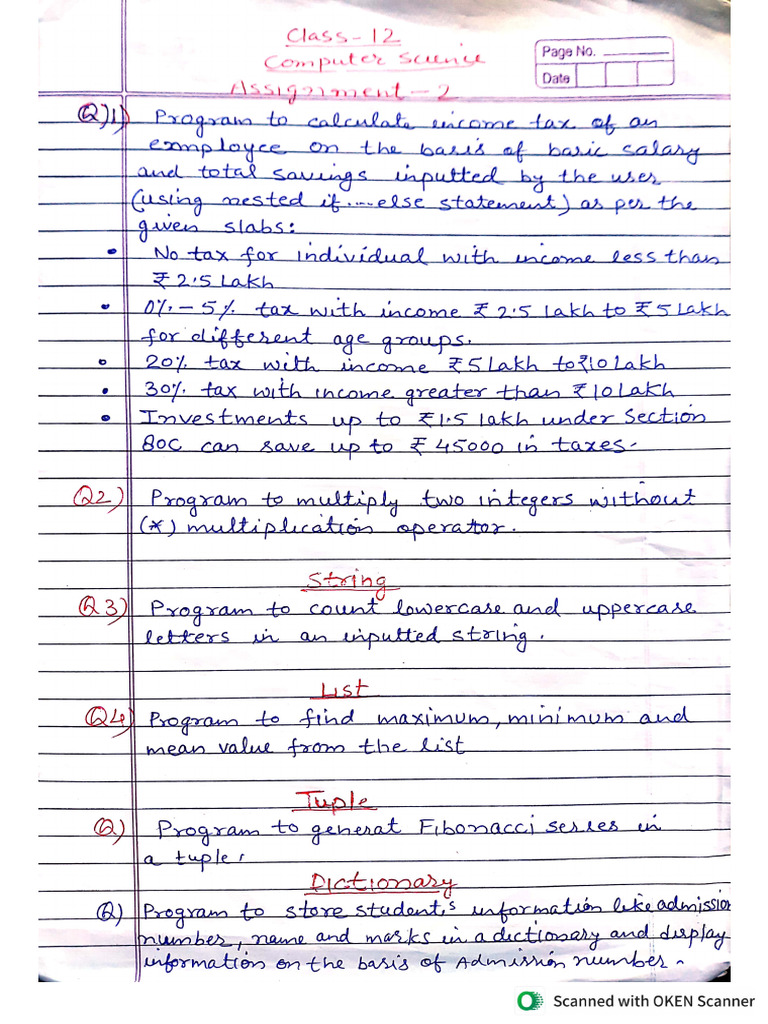 Class-12
Computer Science
Page No.
Date
Assignment-2
Q1) Program to calculate income tax of an
exmployee on the basis of basic salary
and total savings inputted by the user
(using nested if....else statement) as per the
given slabs:
• No tax for individual with income less than
₹2.5 Lakh
• 0%-5% tax with income ₹2.5 lakh to ₹5 Lakh
for different age groups.
• 20% tax with income ₹5 Lakh to ₹10 Lakh
• 30% tax with income greater than ₹10 Lakh
• Investments up to ₹1.5 lakh under Section
80C can save up to ₹45000 in taxes.
Q2) Program to multiply two integers without
(*) multiplication operator.
String
Q3) Program to count lowercase and uppercase
letters in an inputted string.
List
Q4) Program to find maximum, minimum and
mean value from the list
Tuple
Q) Program to generat Fibonacci series in
a tuple.
Dictionary
Q) Program to store student's information like admission
number, name and marks in a dictionary and display
information on the basis of Admission number.
Scanned with OKEN Scanner